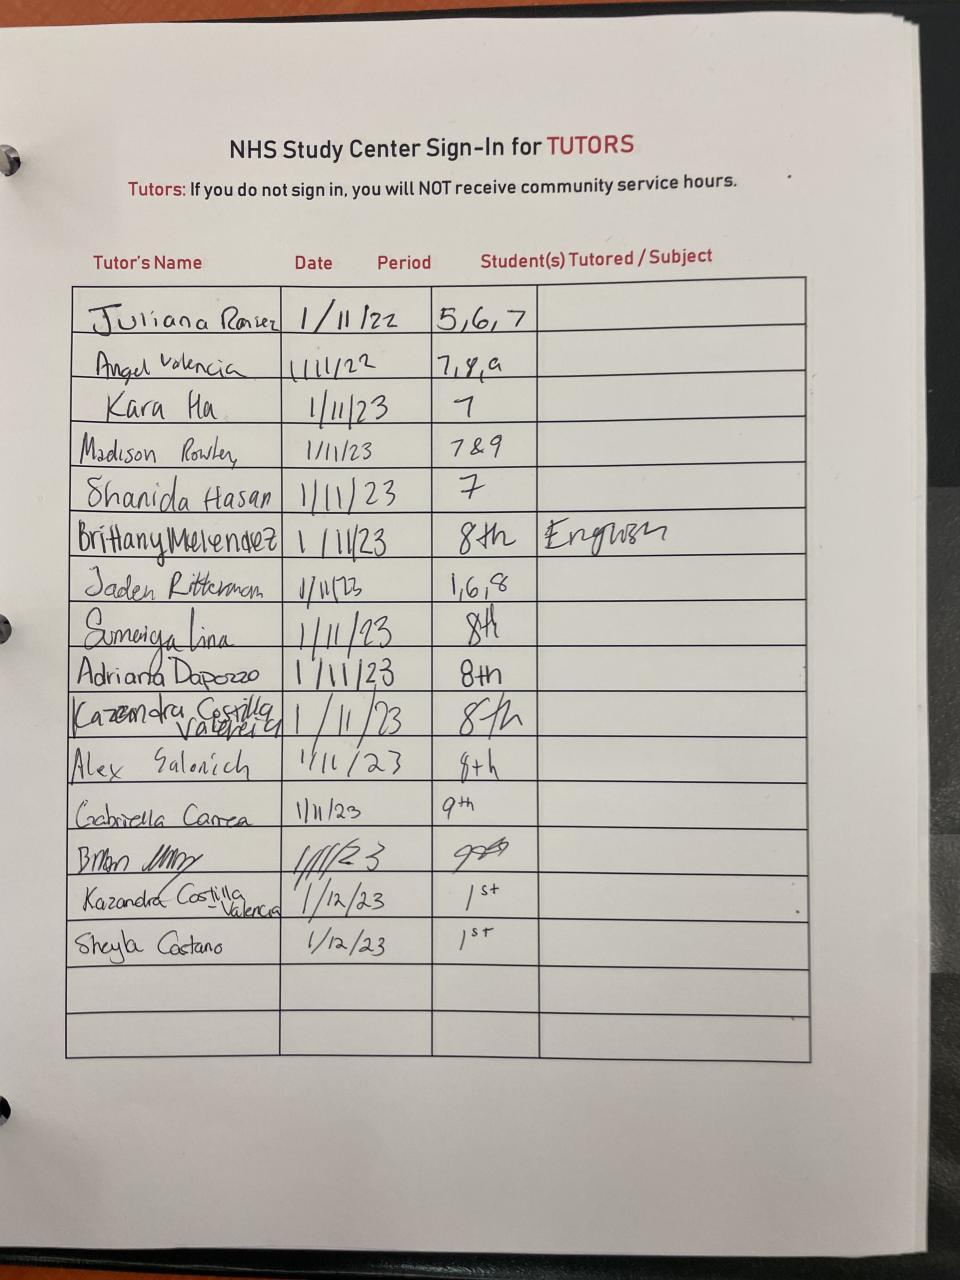 NHS Study Center Sign-In for TUTORS
Tutors: If you do not sign in, you will NOT receive community service hours.
Tutor's Name Date Period Student(s) Tutored / Subject
Juliana 1/11/22 5,6,7
Angel Valencia 1/11/22 7,8,9
Kara Ha 1/11/23 7
Madison Rowley 1/11/23 7 & 9
Shanida Hasan 1/11/23 7
Brittany Melendez 1/11/23 8th English
Jaden Ritterman 1/11/23 1,6,8
Sumaiya Lina 1/11/23 8th
Adriana Dapozzo 1/11/23 8th
Kazandra Costilla
Valencia 1/11/23 8th
Alex Salonich 1/11/23 8th
Gabriella Correa 1/11/23 9th
Brian 1/11/23
Kazandra Costilla
-Valencia 1/12/23 1st
Sheyla Castano 1/12/23 1st